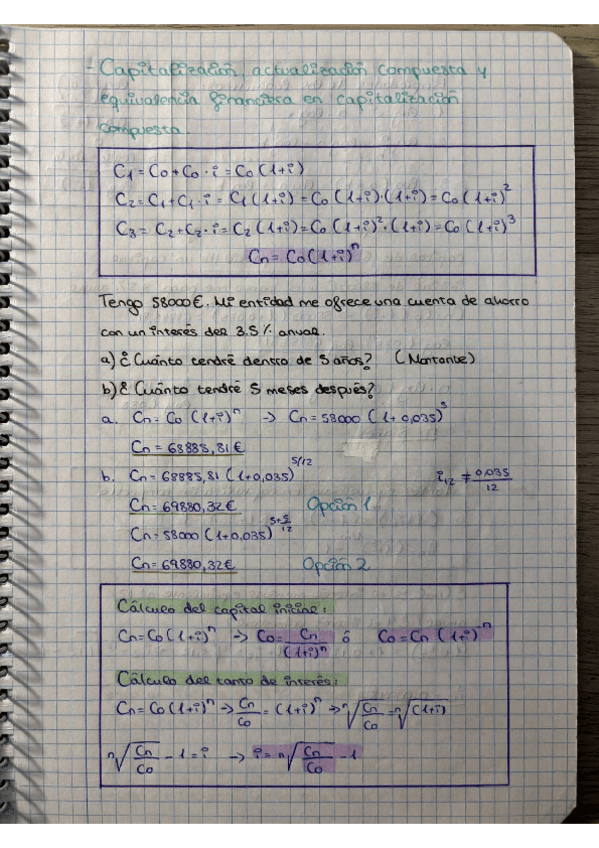 - Capitalización, actualización compuesta y
equivalencia financiera en capitalización
compuesta.
C₁ = C₀ + C₀ · i = C₀ (1+i)
C₂ = C₁ + C₁ · i = C₁ (1+i) = C₀ (1+i) · (1+i) = C₀ (1+i)²
C₃ = C₂ + C₂ · i = C₂ (1+i) = C₀ (1+i)² · (1+i) = C₀ (1+i)³
Cn = C₀ (1+i)ⁿ
Tengo 58000€. Mi entidad me ofrece una cuenta de ahorro
con un interés del 3.5% anual.
a) ¿Cuánto tendré dentro de 5 años? (Montante)
b) ¿Cuánto tendré 5 meses después?
a. Cn = C₀ (1+i)ⁿ → Cn = 58000 (1+0,035)⁵
Cn = 68885,81€
b. Cn = 68885,81 (1+0,035)^5/12 i₁₂ ≠ 0,035/12
Cn = 69880,32€ Opción 1.
Cn = 58000 (1+0,035)^5+5/12
Cn = 69880,32€ Opción 2
Cálculo del capital inicial:
Cn = C₀ (1+i)ⁿ → C₀ = Cn/(1+i)ⁿ ó C₀ = Cn (1+i)⁻ⁿ
Cálculo del tanto de interés:
Cn = C₀ (1+i)ⁿ → Cn/C₀ = (1+i)ⁿ → ⁿ√(Cn/C₀) = ⁿ√(1+i)
ⁿ√(Cn/C₀) - 1 = i → i = ⁿ√(Cn/C₀) - 1